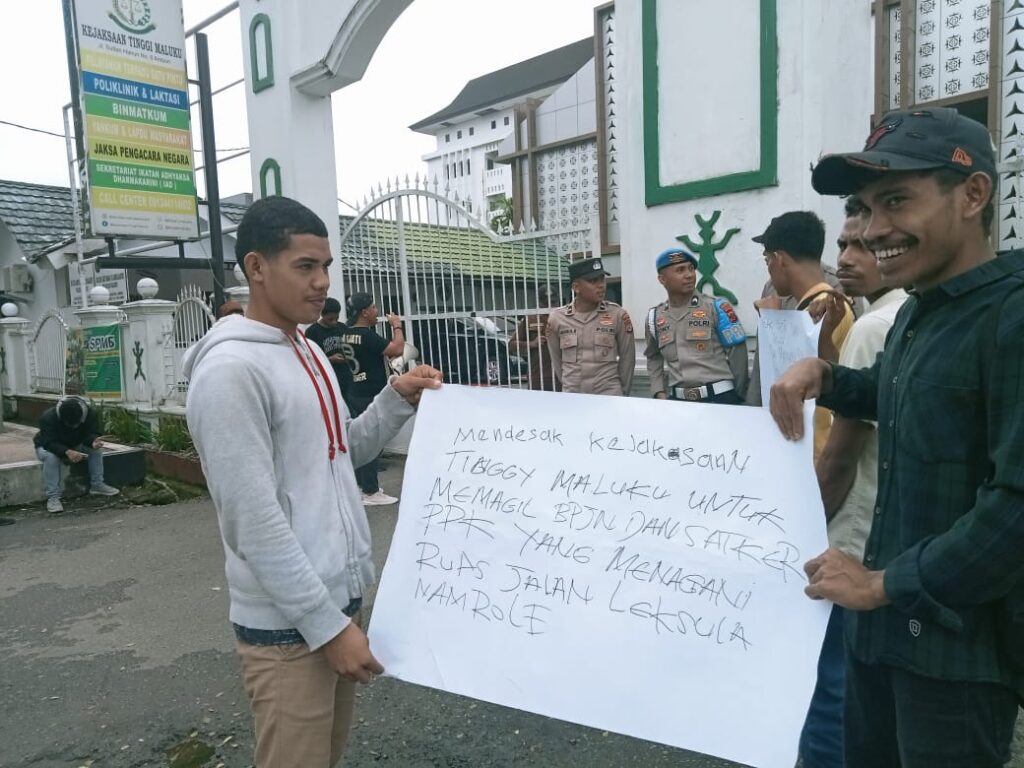 KEJAKSAAN TINGGI MALUKU
PELAYANAN TERPADU SATU PINTU
POLIKLINIK & LAKTASI
BINMATKUM
YANKUM & LAPDU MASYARAKAT
JAKSA PENGACARA NEGARA
SEKRETARIAT IKATAN ADHYAKSA
DHARMAKARINI ( IAD )
CALL CENTER
POLRI
POLRI
Mendesak KEJAKASAAN
TINGGY MALUKU UNTUK
MEMAGIL BPJN DAN SATKER
PPK YANG MENAGANI
RUAS JALAN LEKSULA
NAMROLE